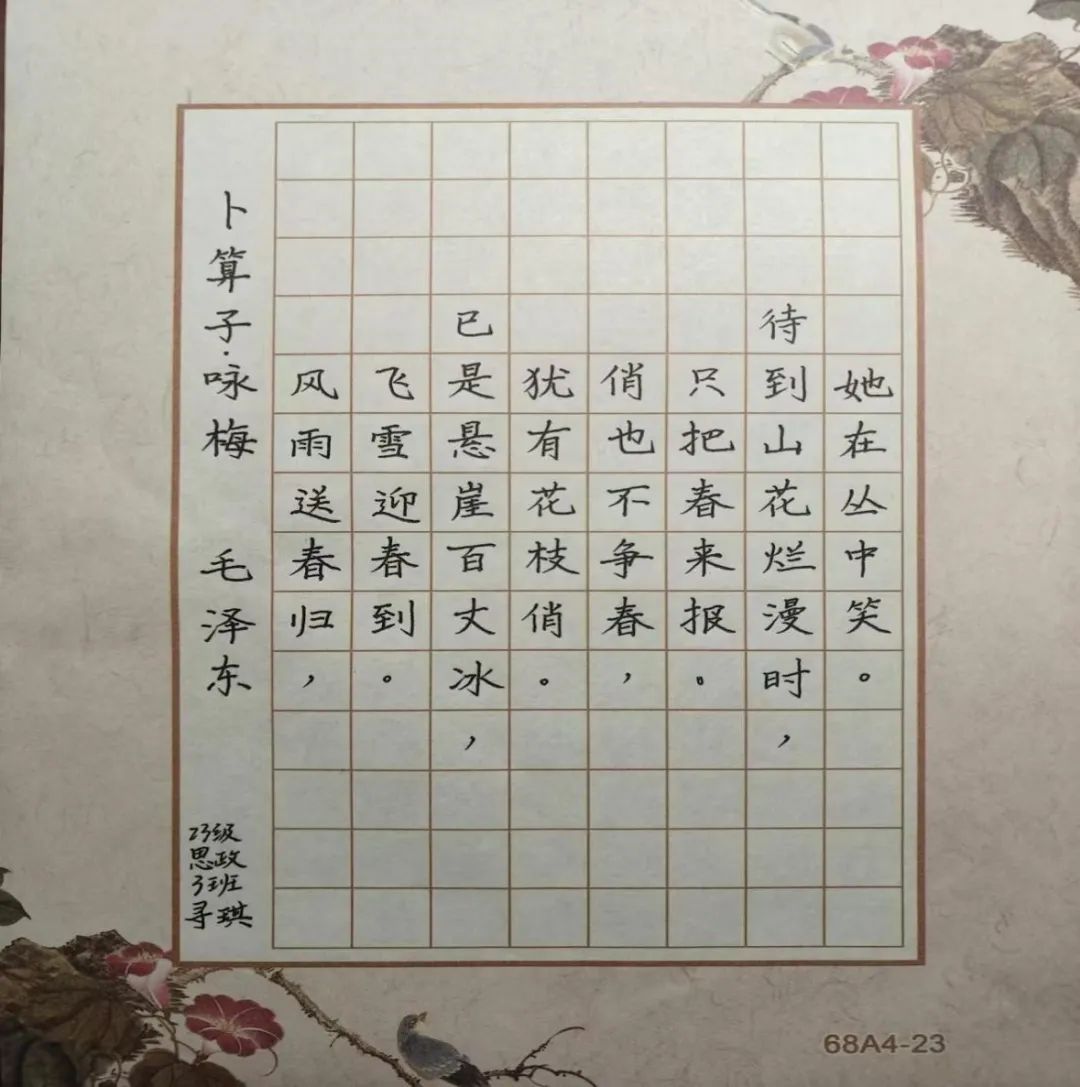 卜算子·咏梅 毛泽东
风雨送春归，
飞雪迎春到。
已是悬崖百丈冰，
犹有花枝俏。
俏也不争春，
只把春来报。
待到山花烂漫时，
她在丛中笑。
23级
思政
3班
寻琪
68A4-23